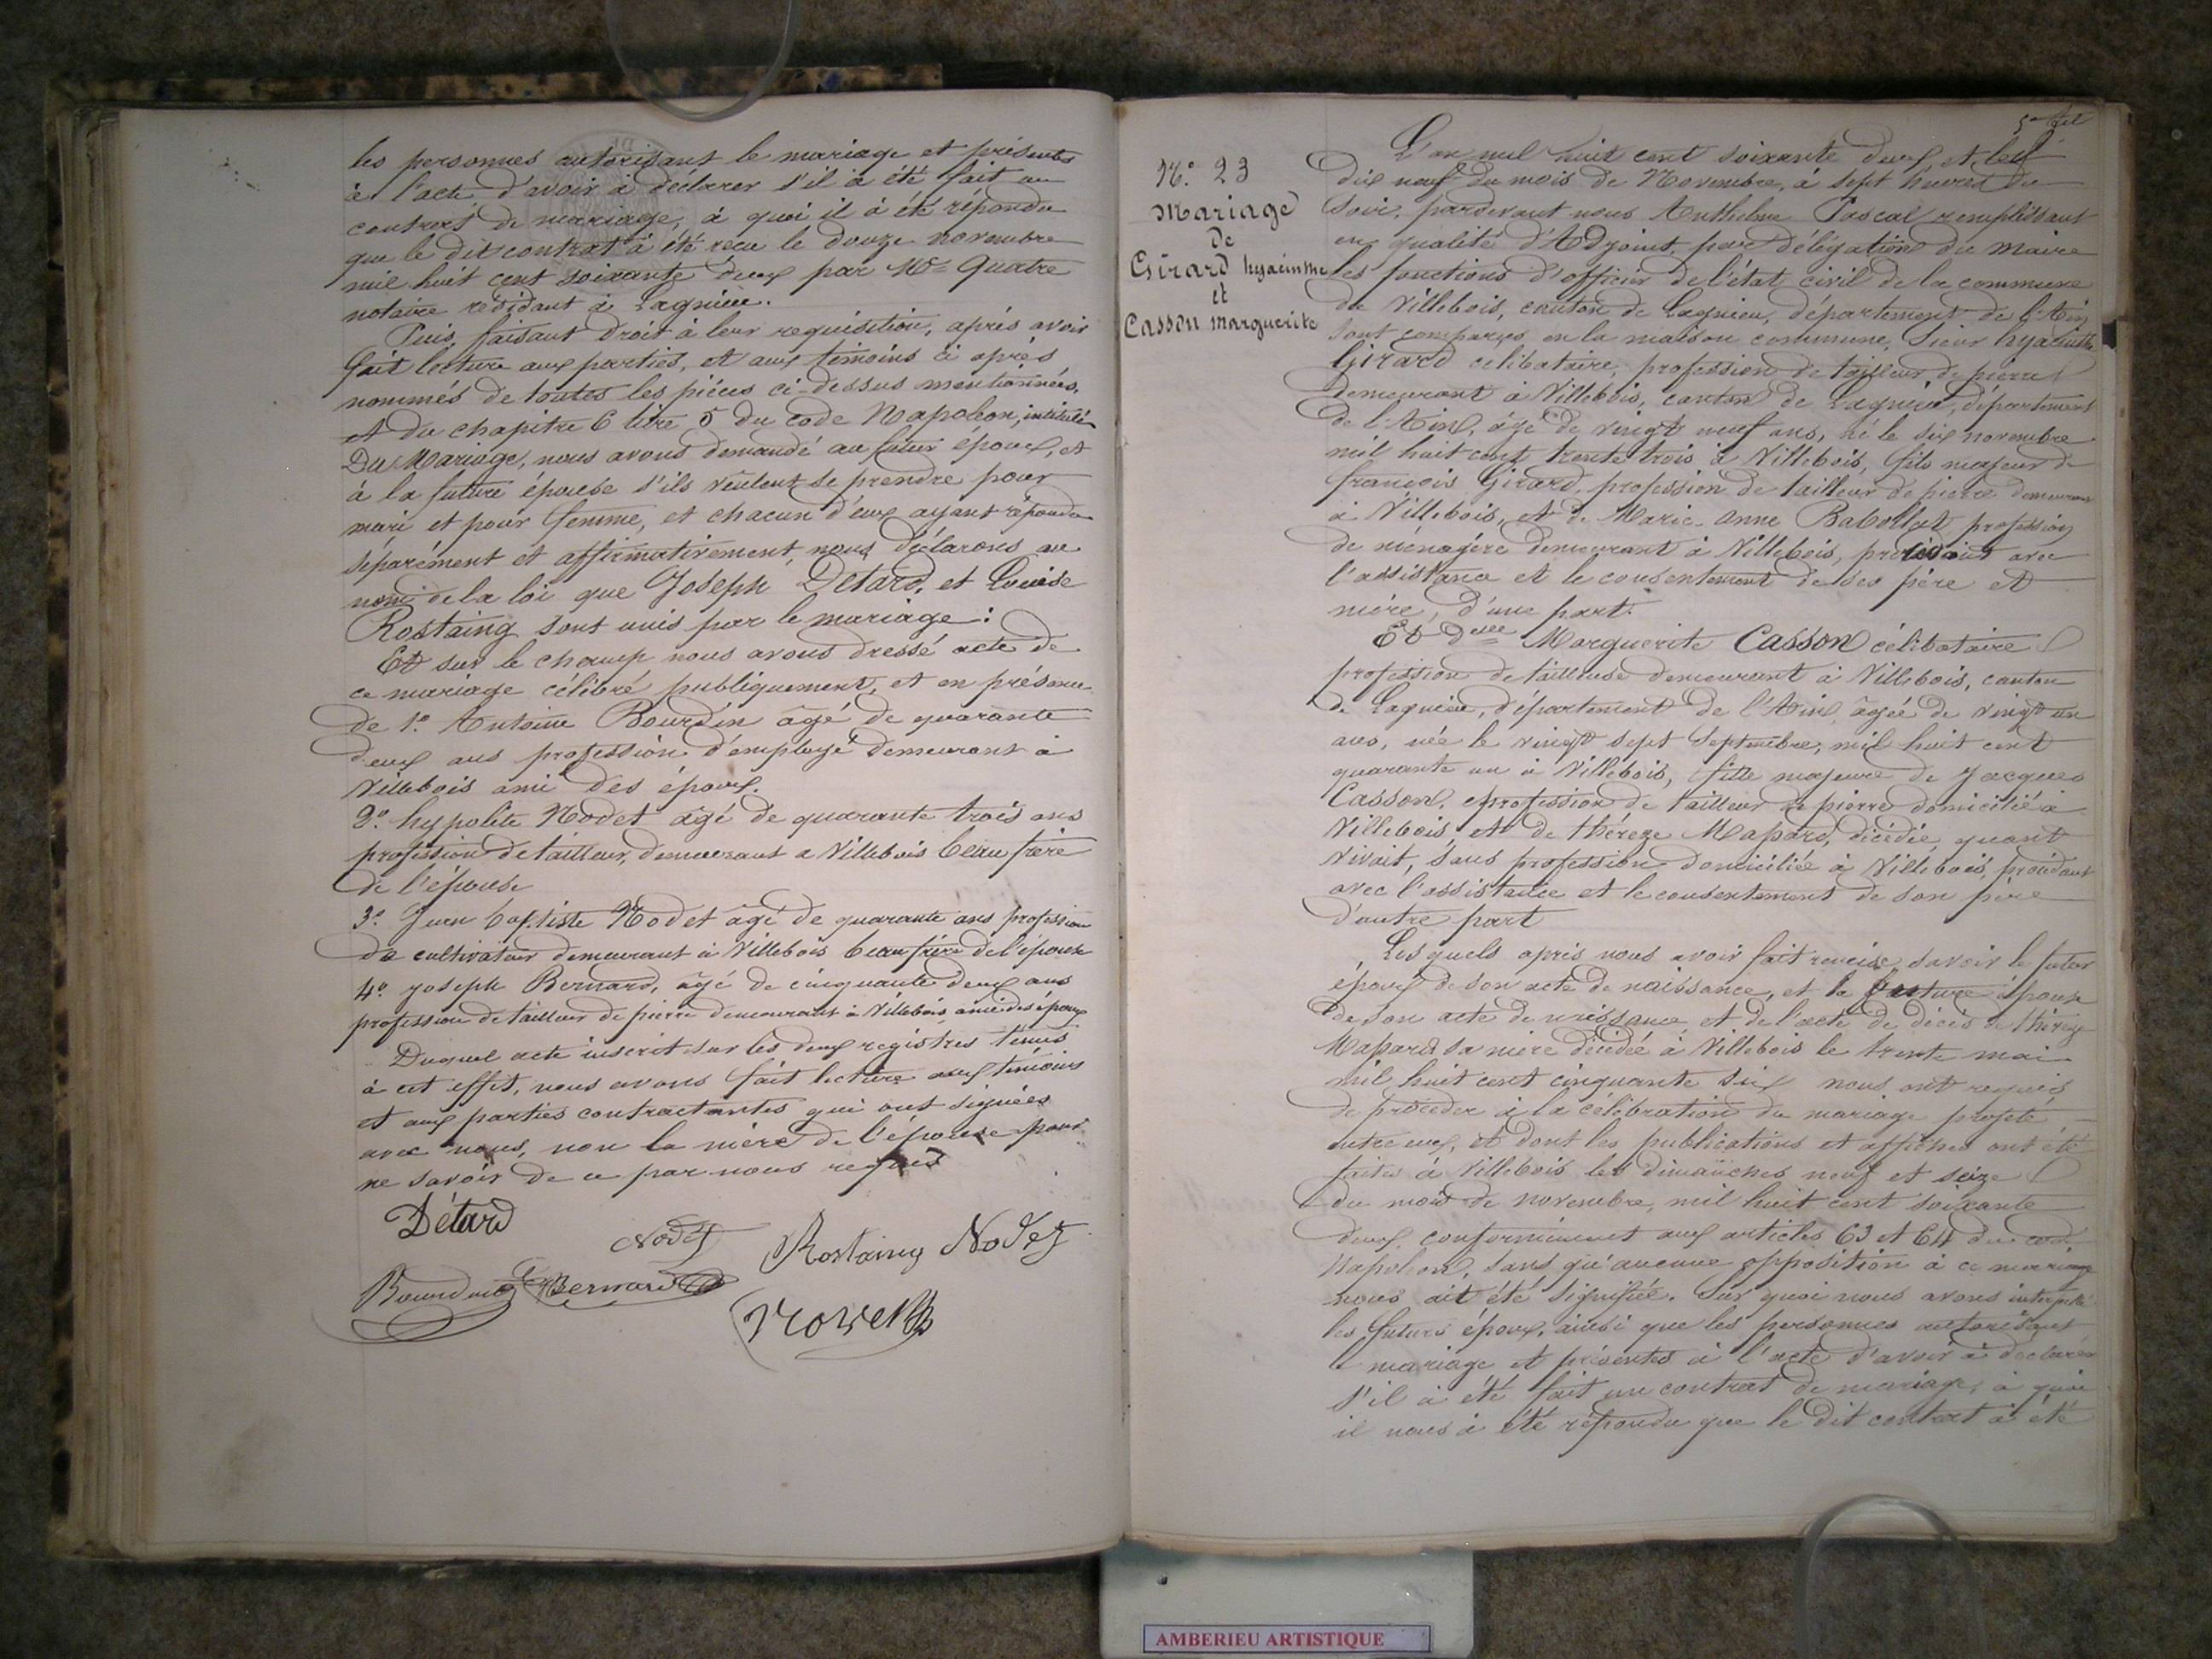 les personnes autorisant le mariage et présentes
à l'acte d'avoir à déclarer s'il à été fait un
contrat de mariage, à quoi il à été répondu
que le dit contrat à été reçu le douze novembre
mil huit cent soixante deux par Me Quatre
notaire résidant à Lagnieu.
Puis, faisant droit à leur requisition, après avoir
fait lecture aux parties, et aux témoins ci après
nommés de toutes les pièces ci-dessus mentionnées,
et du chapitre 6 titre 5 du code Napoleon, intitulé
Du Mariage, nous avons demandé au futur époux, et
à la future épouse s'ils veulent se prendre pour
mari et pour femme, et chacun d'eux ayant répondu
separément et affirmativement, nous déclarons au
nom de la loi que Joseph Détard, et Louise
Rostaing sont unis par le mariage:
Et sur le champ nous avons dressé acte de
ce mariage célébré publiquement, et en présence
de 1° Antoine Bourdin âgé de quarante
deux ans profession d'employé demeurant à
Villebois ami des époux.
2° hypolite Nodet âgé de quarante trois ans
profession de tailleur, demeurant a Villebois beau frère
de l'épouse
3° Jean baptiste Nodet âgé de quarante ans profession
de cultivateur demeurant à Villebois beau frère de l'épouse
4° Joseph Bernard, âgé de cinquante deux ans
profession de tailleur de pierre demeurant à Villebois, ami des époux
Duquel acte inscrit sur les deux registres tenus
à cet effet, nous avons fait lecture aux témoins
et aux parties contractantes qui ont signées
avec nous, non la mère de l'épouse pour
ne savoir de ce par nous requis
Détard
Nodet Rostaing Nodet
Bourdin Bernard
N° 23
Mariage
de
Girard hyacinthe
et
Casson marguerite
L'an mil huit cent soixante deux, et le
dix neuf du mois de Novembre, à sept heures du
soir, pardevant nous Anthelme Pascal remplissant
en qualité d'Adjoint, par délégation du maire
les fonctions d'officier de l'état civil de la commune
de Villebois, canton de Lagnieu, département de l'Ain
sont comparus en la maison commune, Sieur hyacinthe
Girard celibataire, profession de tailleur de pierre
demeurant à Villebois, canton de Lagnieu, département
de l'Ain, âgé de vingt neuf ans, né le six novembre
mil huit cent trente trois à Villebois, fils majeur de
françois Girard, profession de tailleur de pierre demeurant
à Villebois, et de Marie Anne Babollat profession
de ménagère demeurant à Villebois, procédant avec
l'assistance et le consentement de ses père et
mère, d'une part.
Et Delle Marguerite Casson célibataire
profession de tailleuse demeurant à Villebois, canton
de Lagnieu, département de l'Ain, âgée de vingt un
ans, née le vingt sept Septembre, mil huit cent
quarante un à Villebois, fille majeure de Jacques
Casson, profession de tailleur de pierre domicilié à
Villebois et de thérèze Mapard, décédée, quant
vivait, sans profession domiciliée à Villebois, procédant
avec l'assistance et le consentement de son père
d'autre part
Lesquels après nous avoir fait remise, savoir le futur
époux de son acte de naissance, et la future épouse
de son acte de naissance et de l'acte de décès de thérèze
Mapard sa mère décédée à Villebois le trente mai
mil huit cent cinquante six nous ont requis
de procéder à la célébration du mariage projeté
entre eux, et dont les publications et affiches ont été
faites à Villebois les dimanches neuf et seize
du mois de novembre, mil huit cent soixante
deux, conformément aux articles 63 et 64 du code
Napoléon, sans qu'aucune opposition à ce mariage
nous ait été signifiée. Sur quoi nous avons interpellé
les futurs époux, ainsi que les personnes autorisant
le mariage et présentes à l'acte d'avoir à déclarer
s'il à été fait un contrat de mariage, à quoi
il nous à été répondu que le dit contrat à été
AMBERIEU ARTISTIQUE